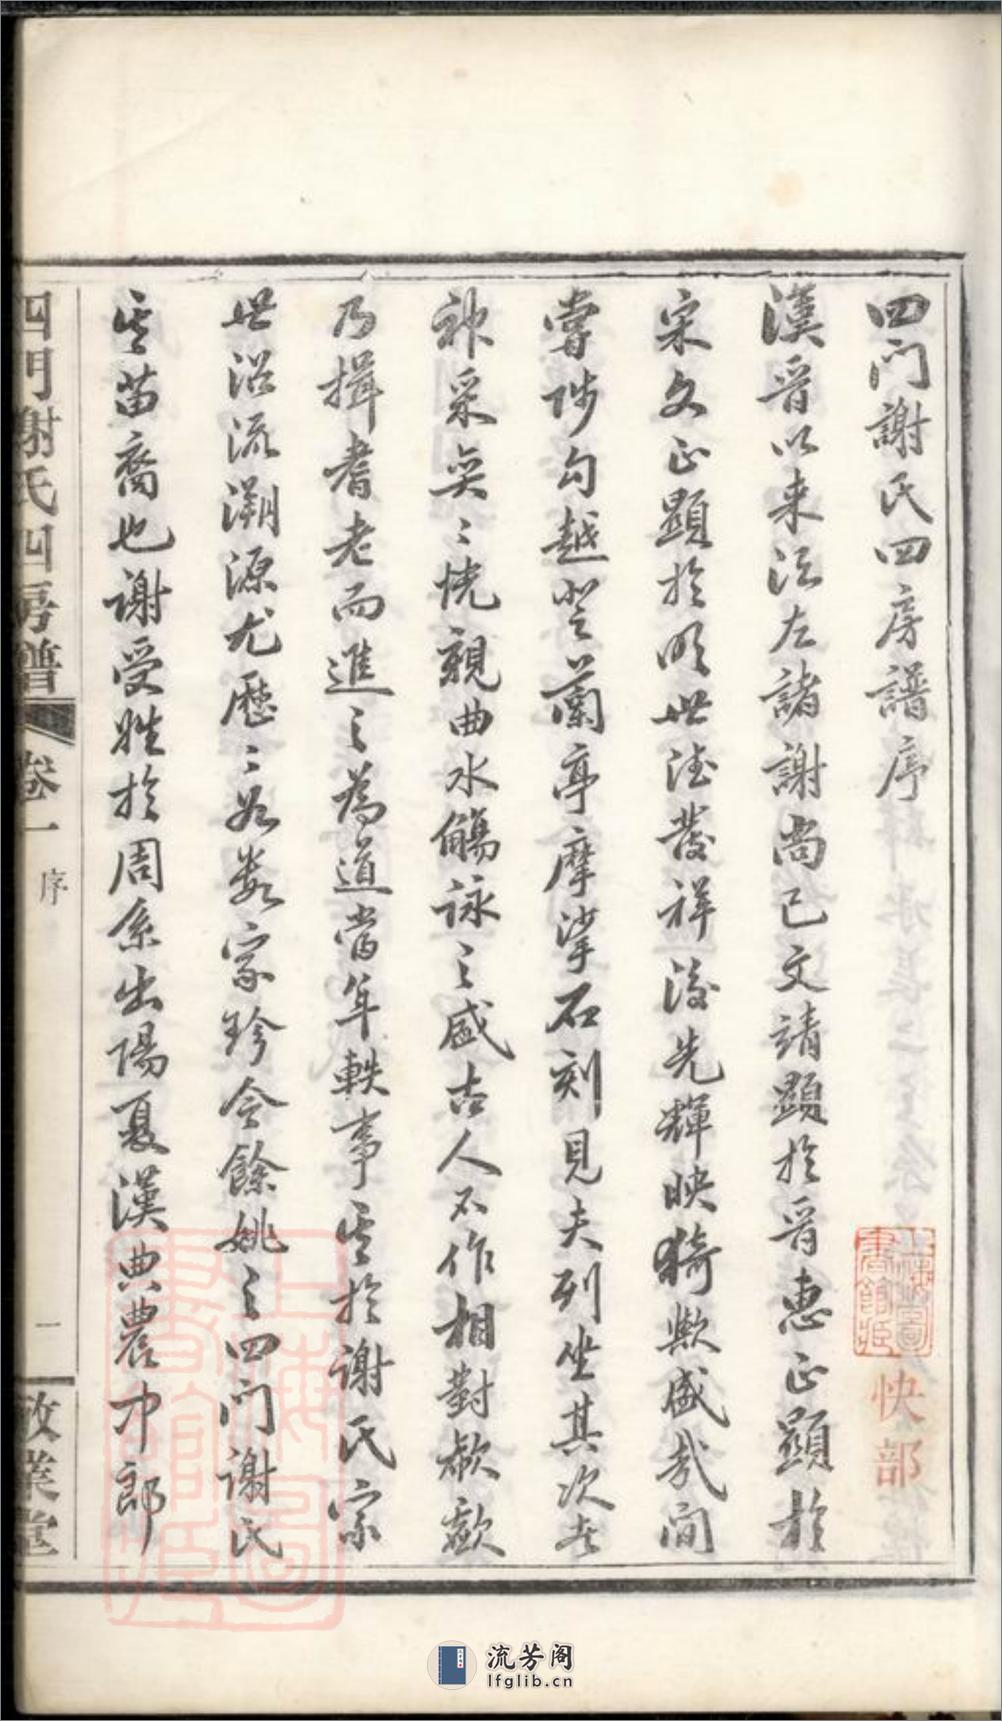 四門謝氏四房譜序
漢晉以來江左諸謝尚已文靖顯於晉惠正顯於
宋文正顯於明世德發祥後先輝映猗歟盛哉間
嘗涉勾越登蘭亭摩挲石刻見夫列坐其次者
神采奕〻恍親曲水觴詠之盛古人不作相對欷歔
乃揖耆老而進之為道當年軼事其於謝氏宗
世沿流溯源尤歷〻如數家珍今餘姚之四門謝氏
其苗裔也謝受姓於周系出陽夏漢典農中郎
四門謝氏四房譜
卷一
序
一
敦業堂
上海圖書館藏
快部
上海圖書館藏
流芳阁
lfglib.cn